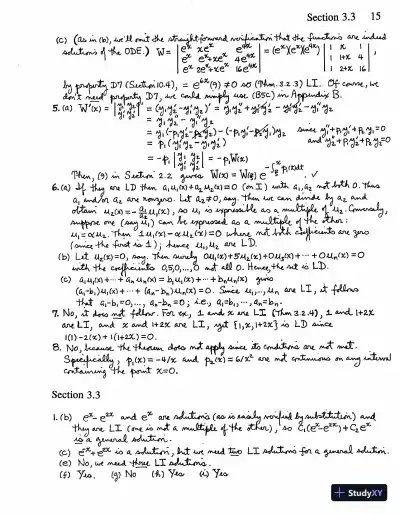 Section 3.3   15
(c) (As in (b), we'll omit the straightforward verification that the functions are indeed
solutions of the ODE.) W = | e^x xe^x e^{4x} ; e^x e^x+xe^x 4e^{4x} ; e^x 2e^x+xe^x 16e^{4x} | = (e^x)(e^x)(e^{4x}) | 1 x 1 ; 1 1+x 4 ; 1 2+x 16 |,
by property D7 (Section 10.4), = e^{6x}(9) ≠ 0 so (Thm. 3.2.3) LI. Of course, we
don't need property D7, we could simply use (B5c) in Appendix B.
5. (a) W'(x) = | y1 y2 ; y1' y2' |' = (y1y2' - y1'y2)' = y1'y2' + y1y2'' - y1'y2' - y1''y2
= y1y2'' - y1''y2
= y1(-p1y2'-p2y2) - (-p1y1'-p2y1)y2 since y1''+p1y1'+p2y1=0
= p1(y1'y2 - y1y2') and y2''+p1y2'+p2y2=0
= -p1 | y1 y2 ; y1' y2' | = -p1W(x)
Then, (9) in Section 2.2 gives W(x) = W(ξ) e^{-∫_ξ^x p1(t)dt}. ✓
6. (a) If they are LD then a1u1(x)+a2u2(x)=0 (on I) with a1, a2 not both 0. Thus
a1 and/or a2 are nonzero. Let a2≠0, say. Then we can divide by a2 and
obtain u2(x) = -(a1/a2)u1(x), so u2 is expressible as a multiple of u1. Conversely,
suppose one (say u1) can be expressed as a multiple of the other:
u1=αu2. Then 1u1(x)-αu2(x)=0 where not both coefficients are zero
(since the first is 1); hence u1, u2 are LD.
(b) Let u2(x)=0, say. Then surely 0u1(x)+5u2(x)+0u3(x)+···+0un(x)=0
with the coefficients 0,5,0,...,0 not all 0. Hence, the set is LD.
(c) a1u1(x)+···+anun(x) = b1u1(x)+···+bnun(x) gives
(a1-b1)u1(x)+···+(an-bn)un(x)=0. Since u1,...,un are LI, it follows
that a1-b1=0,..., an-bn=0; i.e., a1=b1,..., an=bn.
7. No, it does not follow. For ex., 1 and x are LI (Thm 3.2.4), 1 and 1+2x
are LI, and x and 1+2x are LI, yet {1,x,1+2x} is LD since
1(1)-2(x)+1(1+2x)=0.
8. No, because the theorem does not apply since its conditions are not met.
Specifically, p1(x)=-4/x and p2(x)=6/x² are not continuous on any interval
containing the point x=0.
Section 3.3
1. (b) e^x-e^{2x} and e^x are solutions (as is easily verified by substitution) and
they are LI (one is not a multiple of the other), so C1(e^x-e^{2x})+C2e^x
is a general solution.
(c) e^x+e^{2x} is a solution, but we need two LI solutions for a general solution.
(e) No, we need three LI solutions.
(f) Yes. (g) No (h) Yes (i) Yes
StudyXY